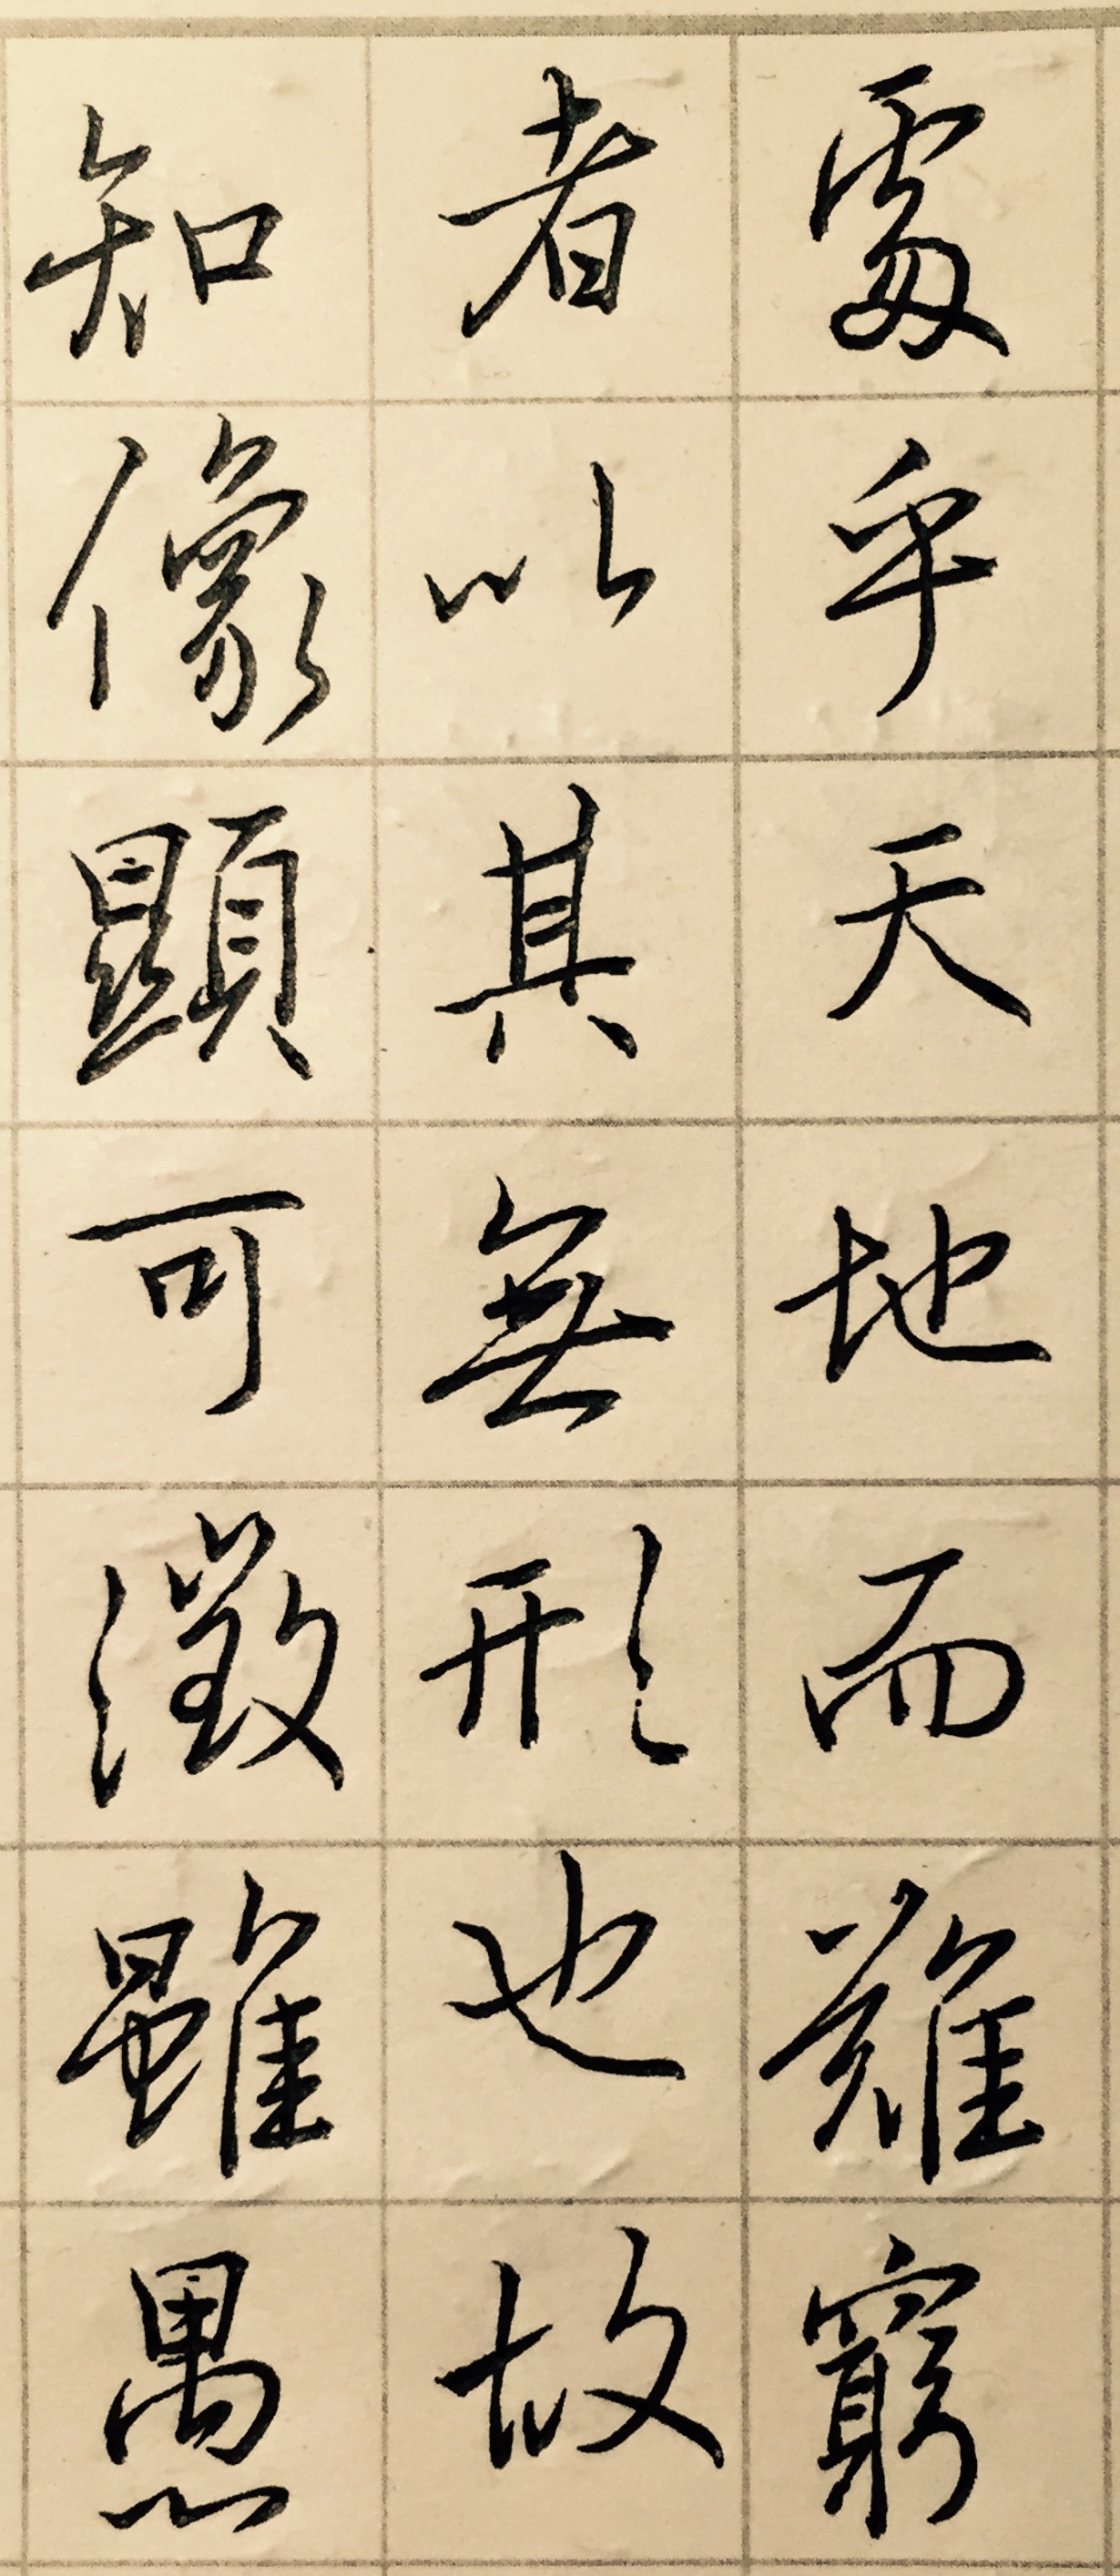 處乎天地而難窮
者以其無形也故
知像顯可徵雖愚